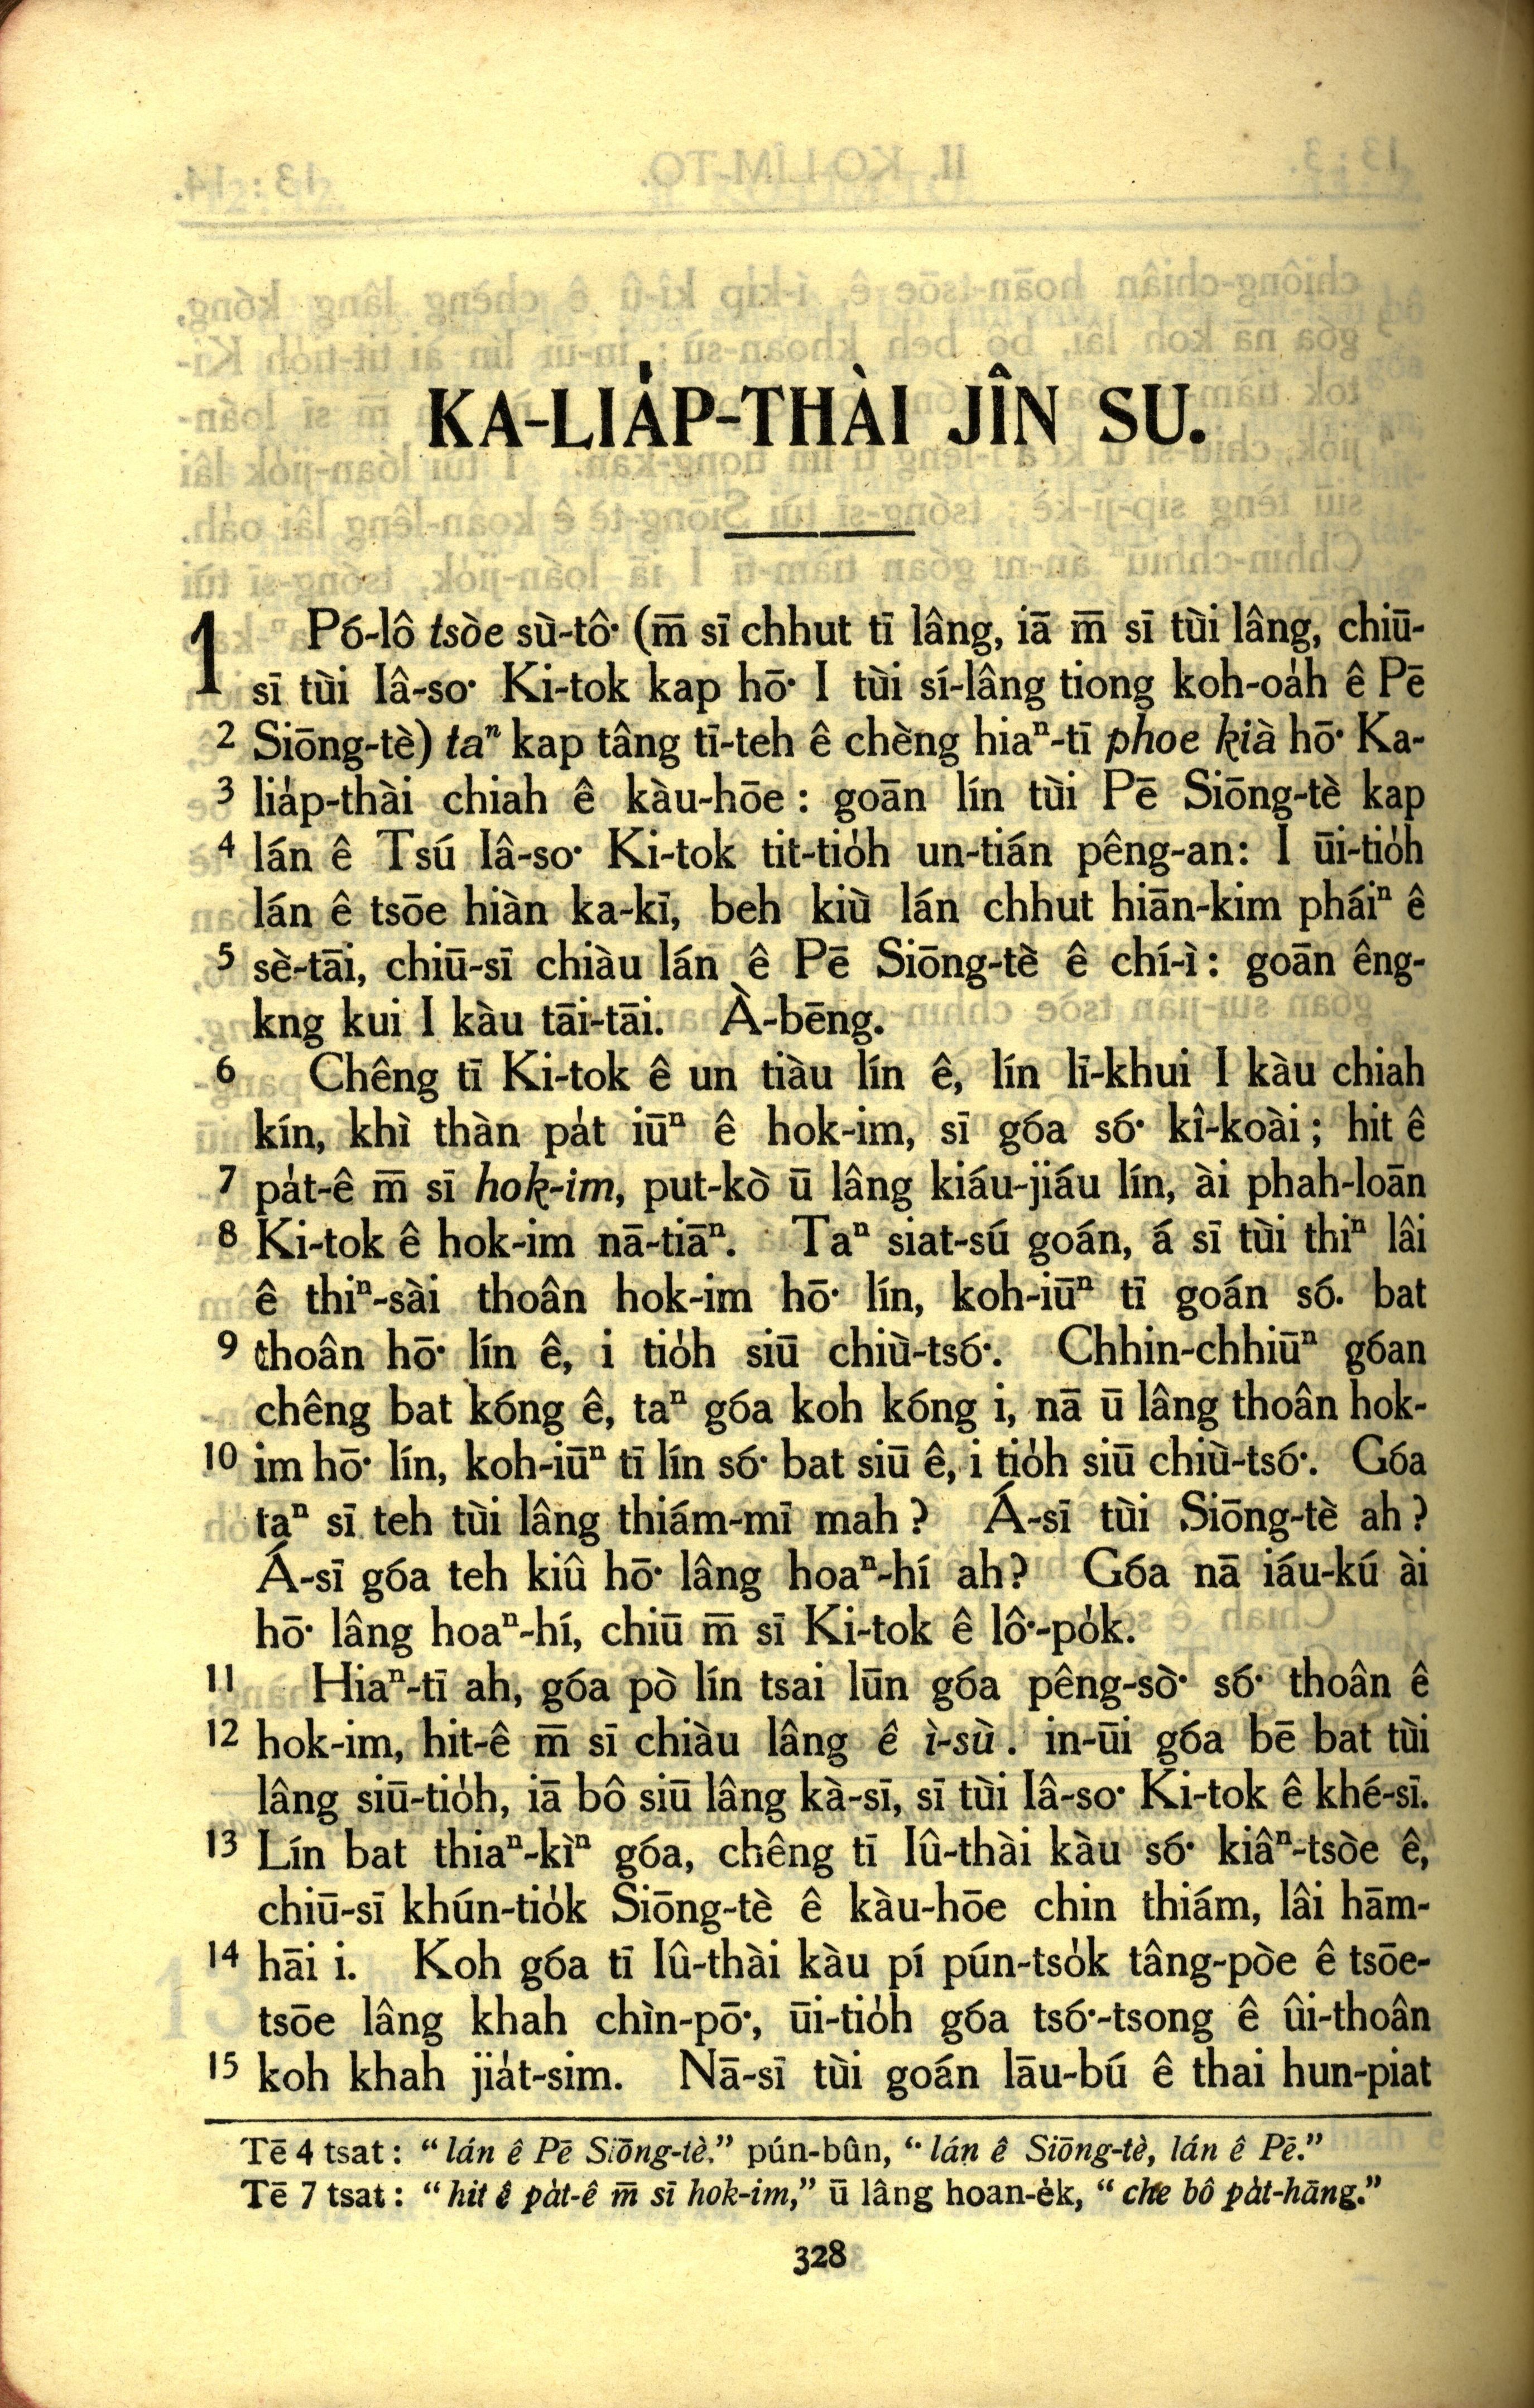 KA-LIA̍P-THÀI JÎN SU.
1 Pó-lô tsòe sù-tô͘ (m̄ sī chhut tī lâng, iā m̄ sī tùi lâng, chiū-
sī tùi Iâ-so͘ Ki-tok kap hō͘ I tùi sí-lâng tiong koh-oa̍h ê Pē
2 Siōng-tè) taⁿ kap tâng tī-teh ê chèng hiaⁿ-tī phoe kià hō͘ Ka-
3 lia̍p-thài chiah ê kàu-hōe : goān lín tùi Pē Siōng-tè kap
4 lán ê Tsú Iâ-so͘ Ki-tok tit-tio̍h un-tián pêng-an: I ūi-tio̍h
lán ê tsōe hiàn ka-kī, beh kiù lán chhut hiān-kim pháiⁿ ê
5 sè-tāi, chiū-sī chiàu lán ê Pē Siōng-tè ê chí-ì : goān êng-
kng kui I kàu tāi-tāi. À-bēng.
6 Chêng tī Ki-tok ê un tiàu lín ê, lín lī-khui I kàu chiah
kín, khì thàn pa̍t iūⁿ ê hok-im, sī góa só͘ kî-koài ; hit ê
7 pa̍t-ê m̄ sī hok-im, put-kò ū lâng kiáu-jiáu lín, ài phah-loān
8 Ki-tok ê hok-im nā-tiāⁿ. Taⁿ siat-sú goán, á sī tùi thiⁿ lâi
ê thiⁿ-sài thoân hok-im hō͘ lín, koh-iūⁿ tī goán só. bat
9 thoân hō͘ lín ê, i tio̍h siū chiù-tsó͘. Chhin-chhiūⁿ góan
chêng bat kóng ê, taⁿ góa koh kóng i, nā ū lâng thoân hok-
10 im hō͘ lín, koh-iūⁿ tī lín só͘ bat siū ê, i tio̍h siū chiù-tsó͘. Góa
taⁿ sī teh tùi lâng thiám-mī mah ? Á-sī tùi Siōng-tè ah ?
Á-sī góa teh kiû hō͘ lâng hoaⁿ-hí ah ? Góa nā iáu-kú ài
hō͘ lâng hoaⁿ-hí, chiū m̄ sī Ki-tok ê lô͘-po̍k.
11 Hiaⁿ-tī ah, góa pò lín tsai lūn góa pêng-sò͘ só͘ thoân ê
12 hok-im, hit-ê m̄ sī chiàu lâng ê ì-sù . in-ūi góa bē bat tùi
lâng siū-tio̍h, iā bô siū lâng kà-sī, sī tùi Iâ-so͘ Ki-tok ê khé-sī.
13 Lín bat thiaⁿ-kìⁿ góa, chêng tī Iû-thài kàu só͘ kiâⁿ-tsòe ê,
chiū-sī khún-tio̍k Siōng-tè ê kàu-hōe chin thiám, lâi hām-
14 hāi i. Koh góa tī Iû-thài kàu pí pún-tso̍k tâng-pòe ê tsōe-
tsōe lâng khah chìn-pō͘, ūi-tio̍h góa tsó͘-tsong ê ûi-thoân
15 koh khah jia̍t-sim. Nā-sī tùi goán lāu-bú ê thai hun-piat
Tē 4 tsat : “ lán ê Pē Siōng-tè.” pún-bûn, “ lán ê Siōng-tè, lán ê Pē.”
Tē 7 tsat : “ hit ê pa̍t-ê m̄ sī hok-im,” ū lâng hoan-e̍k, “ che bô pa̍t-hāng.”
328